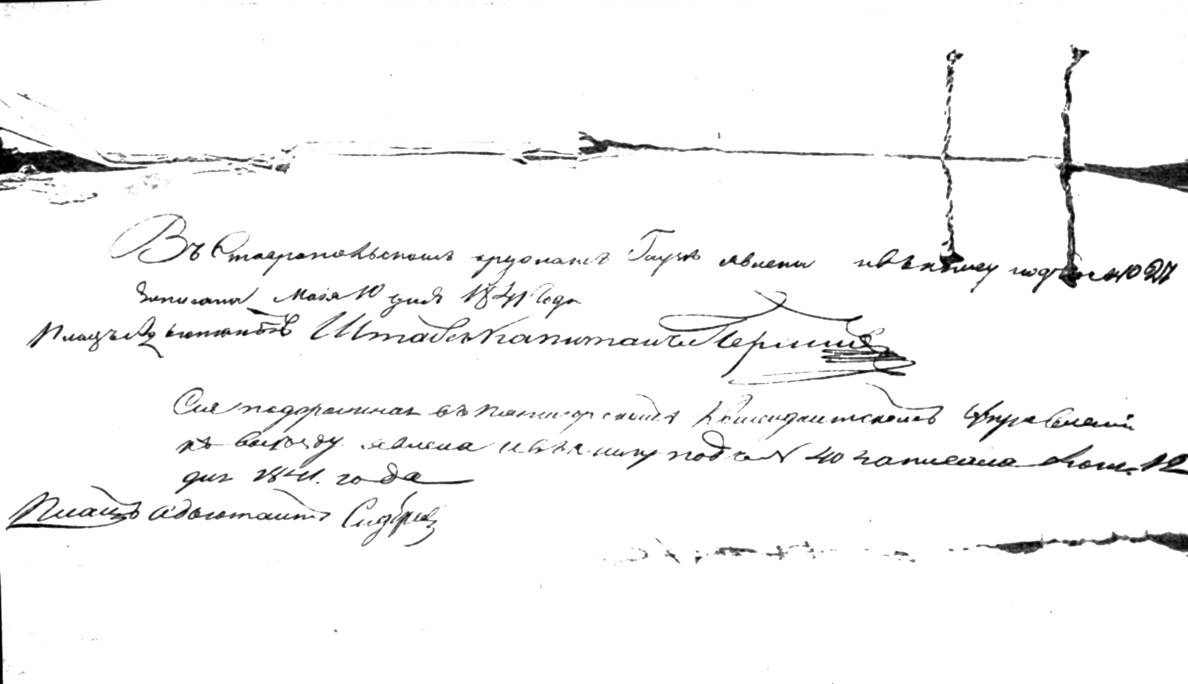 Въ Ставропольскомъ ордонансъ Гаузѣ явлена и въ книгу подъ № 27
записана Маія 10 дня 1841 Года
Плацъ Адъютантъ Штабсъ Капитанъ
Сія подорожная въ Пятигорскомъ Комендантскомъ Управленіи
къ выѣзду явлена и въ книгу подъ № 40 записана 12
дня 1841. года
Плацъ адъютантъ Сидери